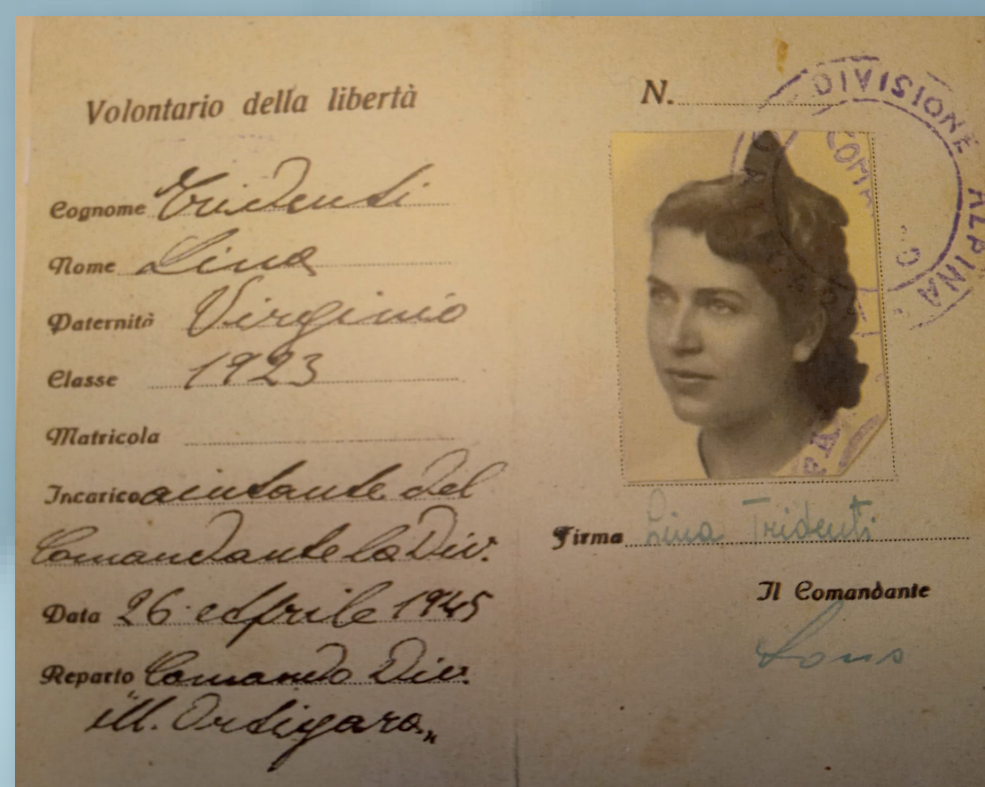 Volontario della libertà
Cognome Tridenti
Nome Lina
Paternità Virginio
Classe 1923
Matricola
Incarico aiutante del
Comandante la Div.
Data 26 Aprile 1945
Reparto Comando Div.
"M. Ortigara"
N.
DIVISIONE ALPINA
COMANDO
Firma Lina Tridenti
Il Comandante